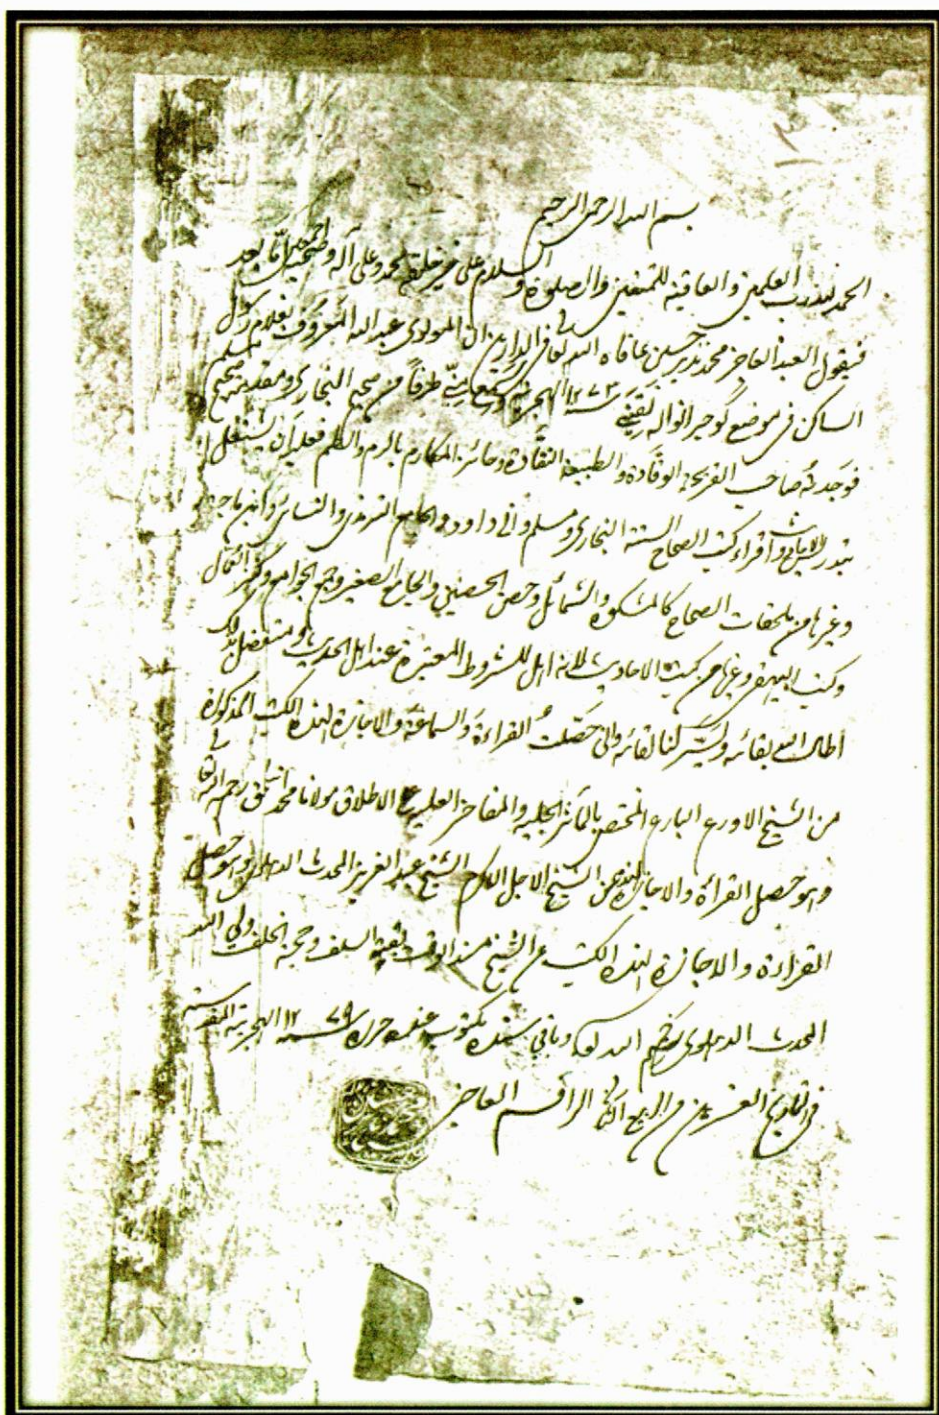 بسم الله الرحمن الرحيم
الحمد لله رب العلمين والعاقبة للمتقين والصلوة والسلام على خير خلقه محمد وعلى آله وصحبه اجمعين اما بعد
فيقول العبد العاجز محمد نذير حسين عافاه الله تعالى في الدارين ان المولوى عبد الله المعروف بغلام رسول
الساكن في موضع گوجرانواله سنة ١٢٧٣ الهجرية سمع منى طرفا من صحيح البخارى ومقدمة صحيح مسلم
فوجدته صاحب القريحة الوقادة والطبيعة النقادة وحائز المكارم فعليه ان يشتغل
بتدريس واقراء كتب الصحاح الستة البخارى ومسلم وابى داود والجامع الترمذى والنسائى وابن ماجه
وغيرها من ملحقات الصحاح كالمشكوة والشمائل وحصن الحصين والجامع الصغير وجمع الجوامع وكنز العمال
وكتب البيهقى وغيرها من كتب الاحاديث لانه اهل للشروط المعتبرة عند اهل الحديث ومستفضل لذلك
اطال الله بقائه ويسر لنا لقائه وانى حصلت القراءة والسماعة والاجازة لهذه الكتب المذكورة
من الشيخ الاورع البارع المختص بالمآثر الجلية والمفاخر العلية على الاطلاق مولانا محمد اسحق رحمه الله تعالى
وهو حصل القراءة والاجازة عن الشيخ الاجل الاكرم الشيخ عبد العزيز المحدث الدهلوى وهو حصل
القراءة والاجازة لهذه الكتب عن الشيخ مسند الوقت بقية السلف وحجة الخلف ولي الله
المحدث الدهلوى رحمهم الله تعالى وباقى سنده مكتوب عنده حرره سنة ١٢٧٩ الهجرية المقدسة
فى تاريخ العشرين من الربيع الثانى الراقم العاجز